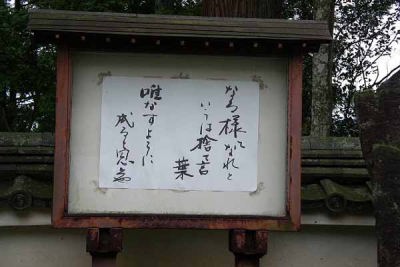 なる様になれと
いうは捨て言
葉
唯なすように
成ると思